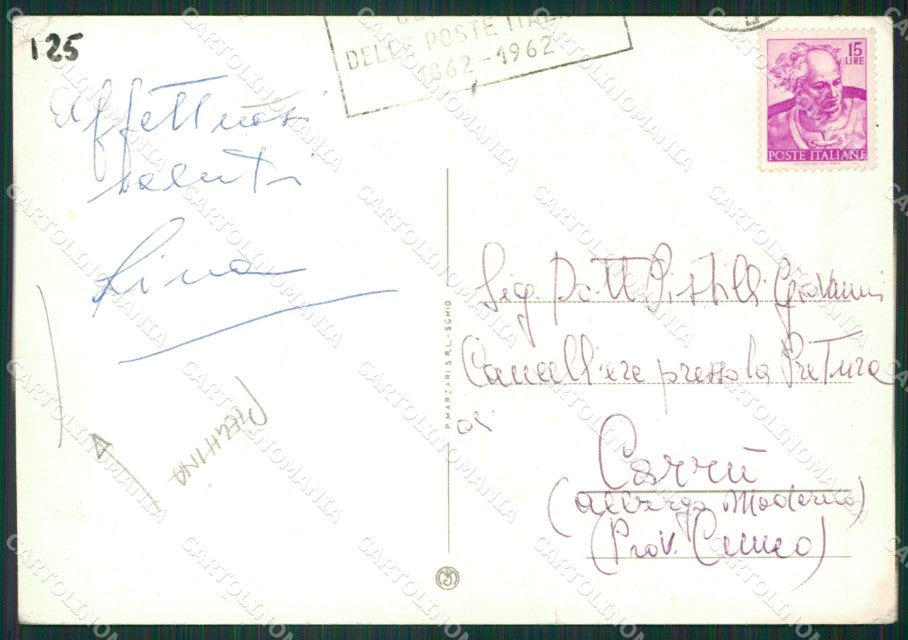 125
DELLE POSTE ITAL
1862-1962
15
LIRE
POSTE ITALIANE
Affettuosi
saluti
Lina
PIEGHINA
P. MARZARI S.R.L. - SCHIO
Sig. Dott. Pistilli Giovanni
Cancelliere presso la Pretura
di
Carrù
(albergo Moderno)
(Prov. Cuneo)
CARTOLINOMANIA